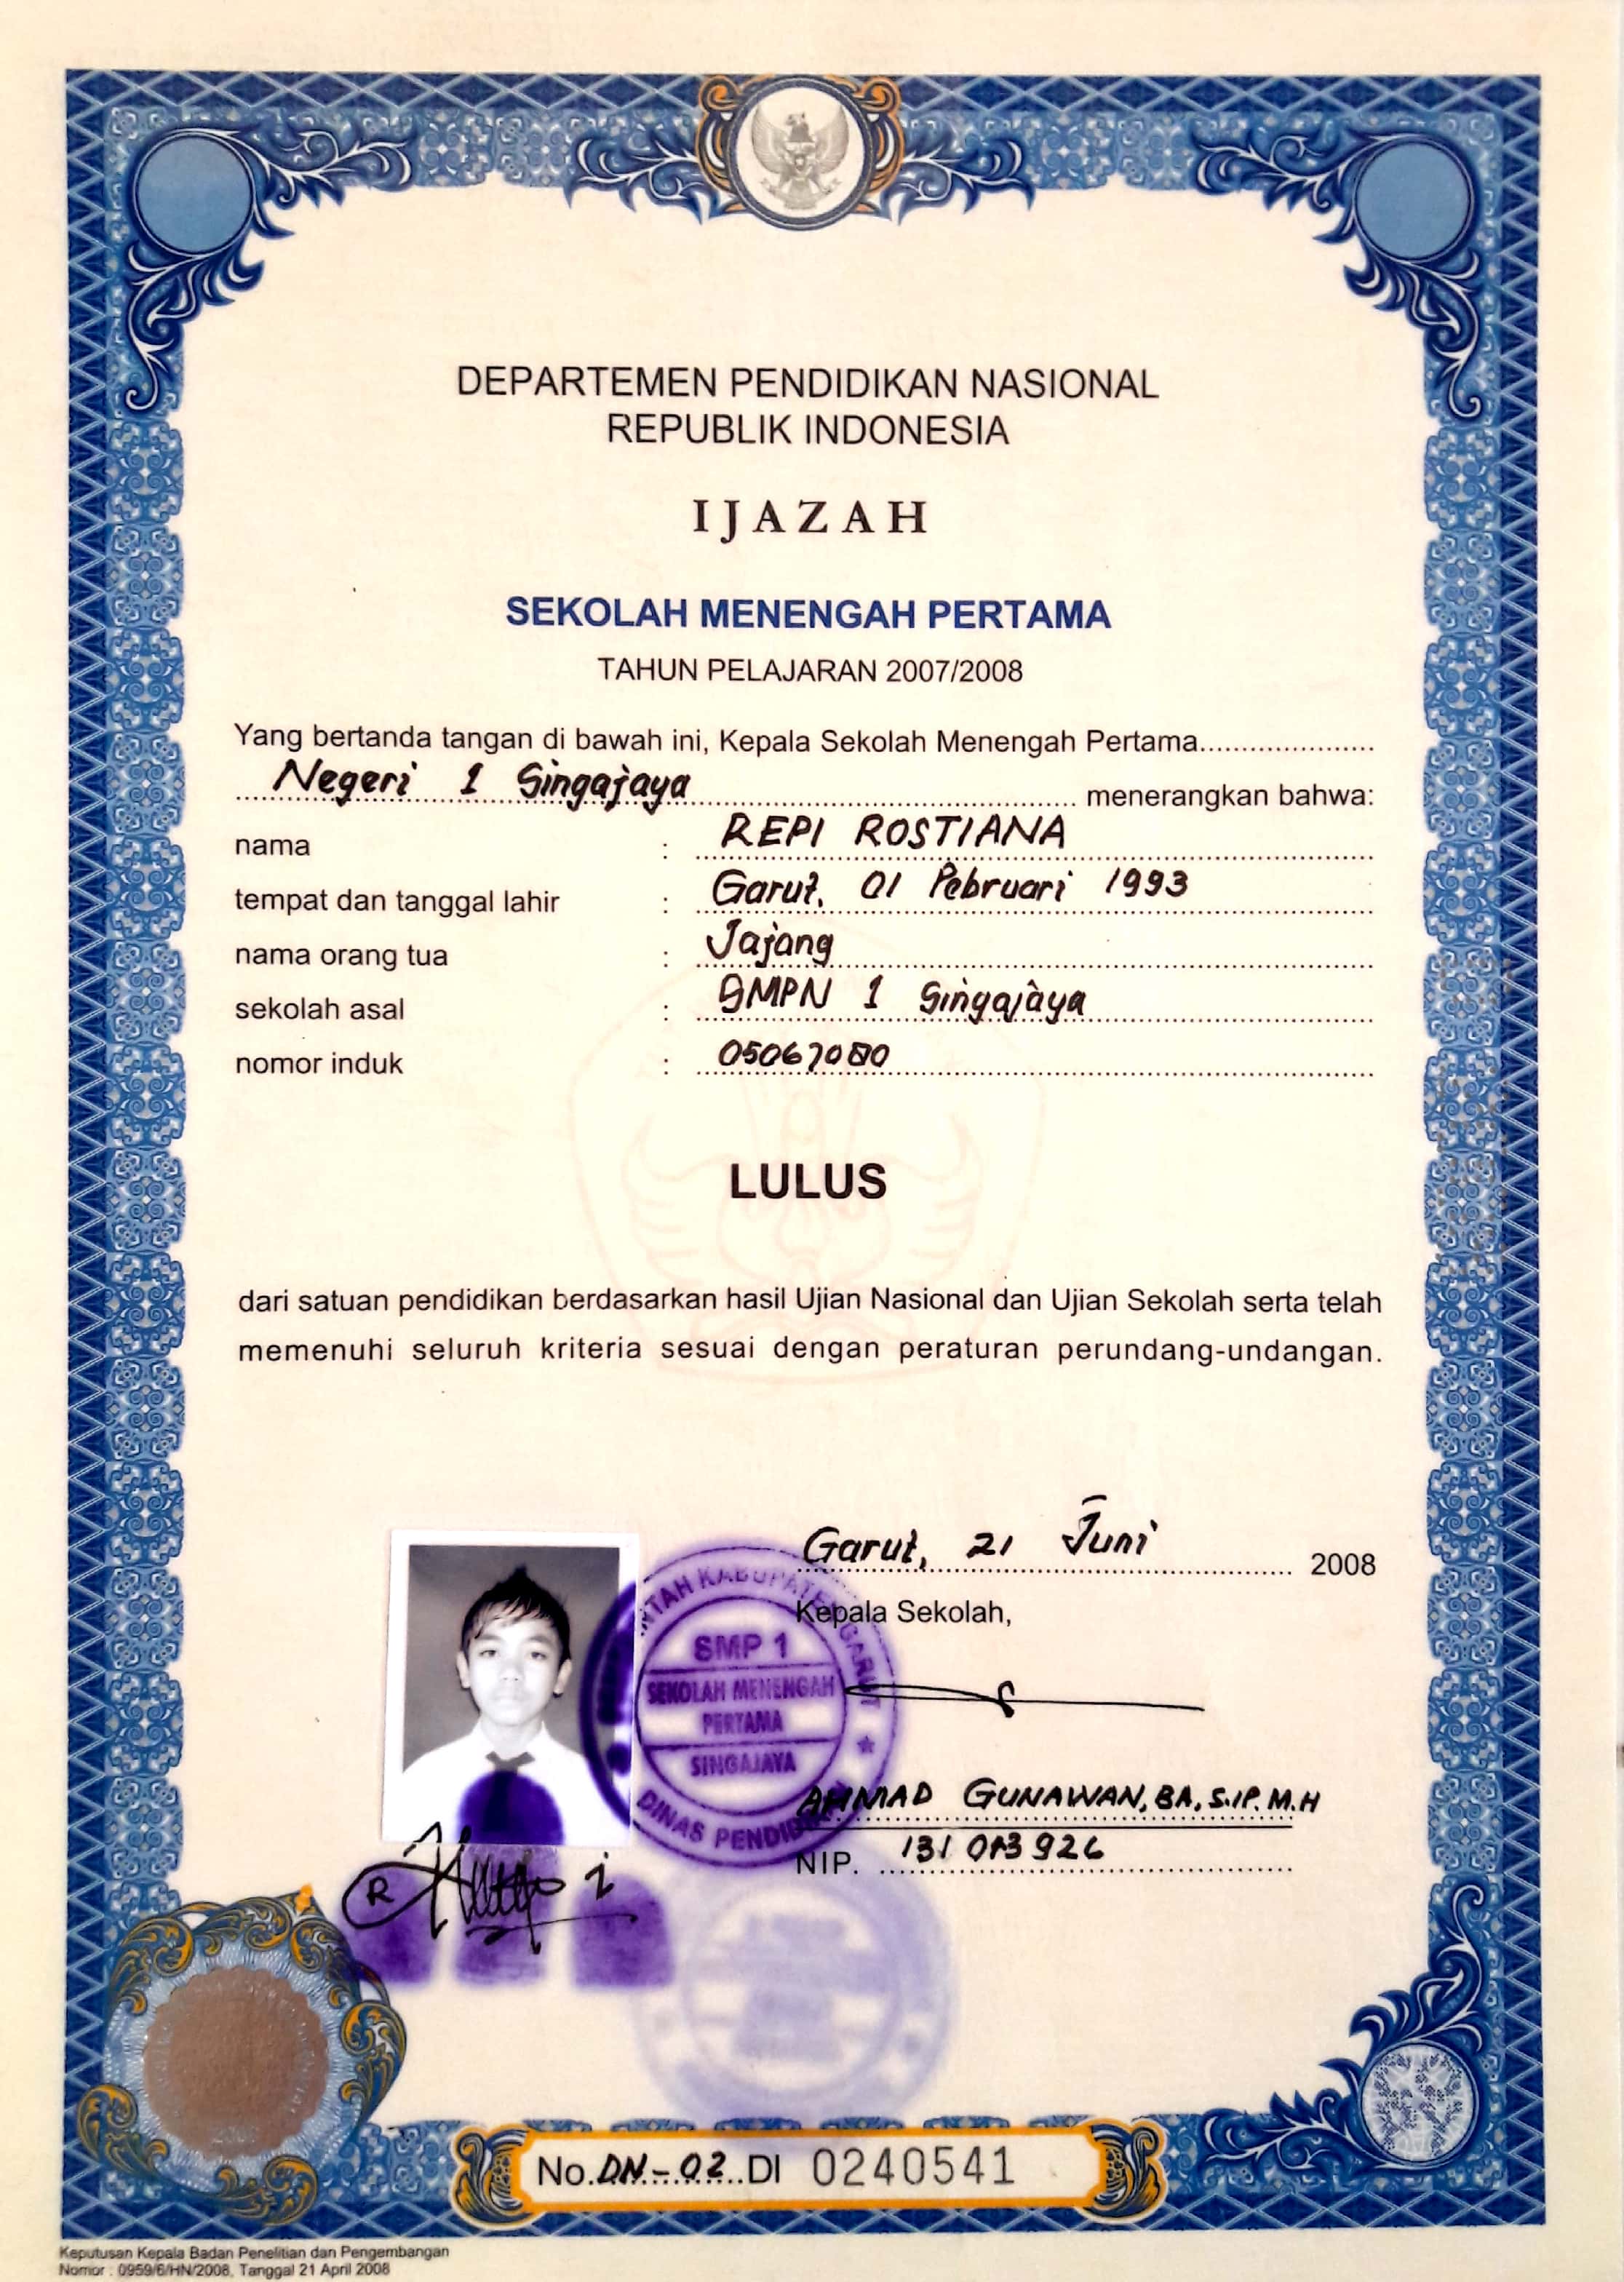 DEPARTEMEN PENDIDIKAN NASIONAL
REPUBLIK INDONESIA
IJAZAH
SEKOLAH MENENGAH PERTAMA
TAHUN PELAJARAN 2007/2008
Yang bertanda tangan di bawah ini, Kepala Sekolah Menengah Pertama
Negeri 1 Singajaya menerangkan bahwa:
nama : REPI ROSTIANA
tempat dan tanggal lahir : Garut, 01 Pebruari 1993
nama orang tua : Jajang
sekolah asal : SMPN 1 Singajaya
nomor induk : 05067080
LULUS
dari satuan pendidikan berdasarkan hasil Ujian Nasional dan Ujian Sekolah serta telah
memenuhi seluruh kriteria sesuai dengan peraturan perundang-undangan.
Garut, 21 Juni 2008
Kepala Sekolah,
KABUPATEN GARUT
SMP 1
SEKOLAH MENENGAH
PERTAMA
SINGAJAYA
DINAS
AHMAD GUNAWAN, BA, S.IP. M.H
NIP. 131
No. DN-02 DI 0240541
Keputusan Kepala Badan Penelitian dan Pengembangan
Nomor : 0959/6/HN/2008, Tanggal 21 April 2008